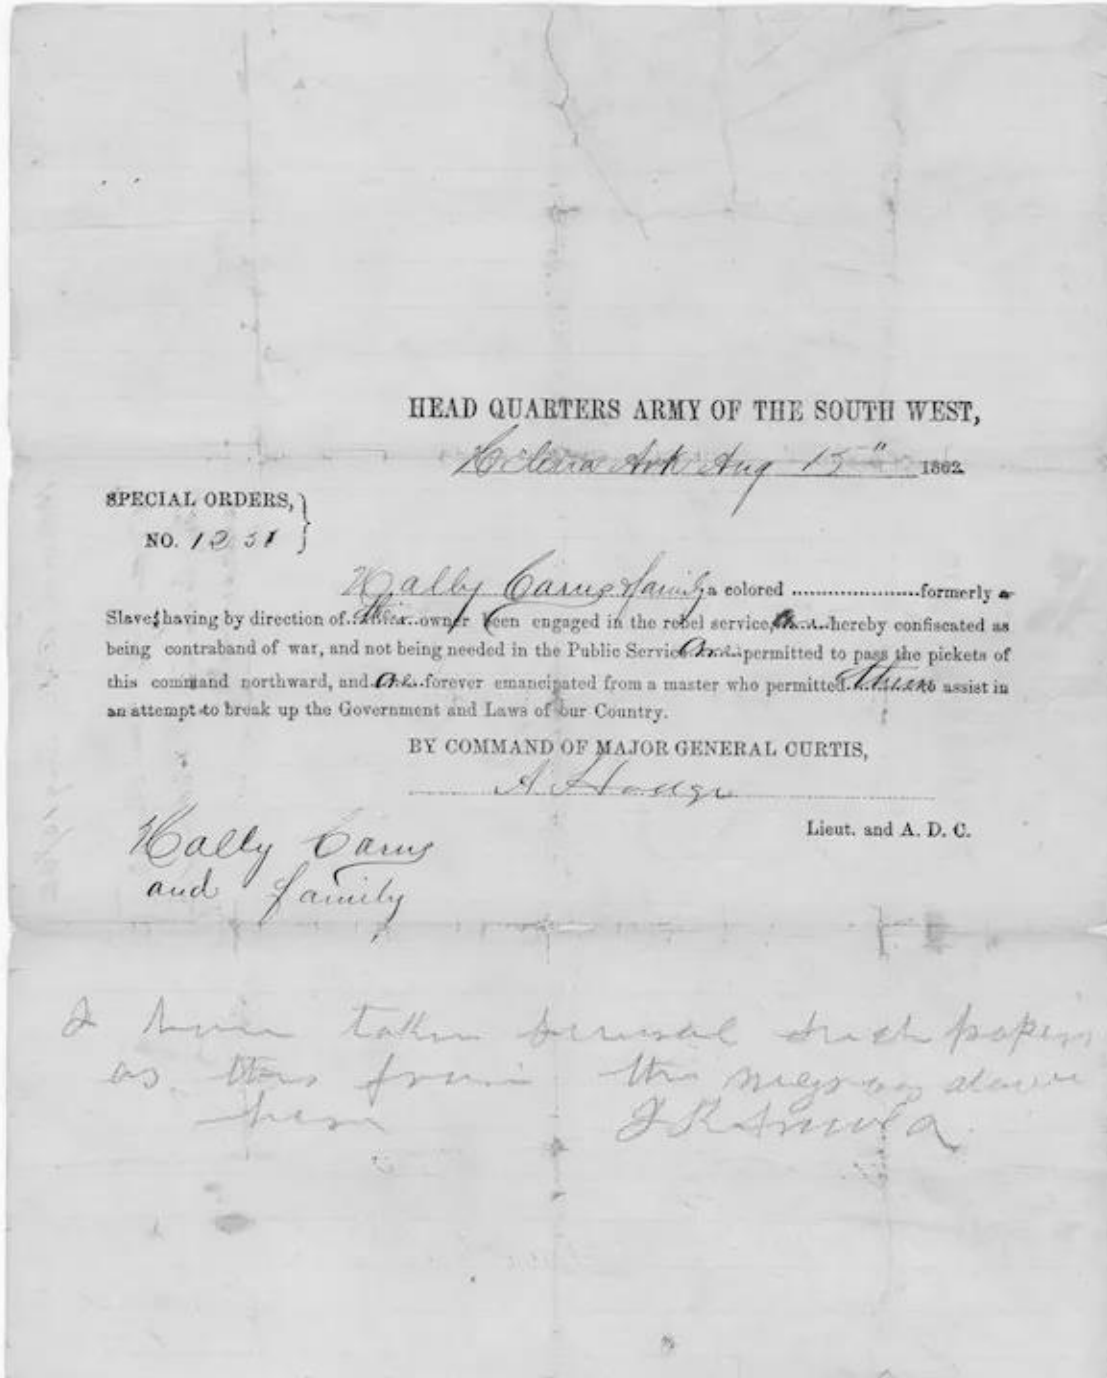 HEAD QUARTERS ARMY OF THE SOUTH WEST,
Helena Ark Aug 15" 1862
SPECIAL ORDERS,
NO. 1251
family a colored ........................formerly a
Slaves having by direction of their owner been engaged in the rebel service, are hereby confiscated as
being contraband of war, and not being needed in the Public Service are permitted to pass the pickets of
this command northward, and are forever emancipated from a master who permitted them to assist in
an attempt to break up the Government and Laws of our Country.
BY COMMAND OF MAJOR GENERAL CURTIS,
Lieut. and A. D. C.
and family
I have taken several such papers
as this from the negroes down
here